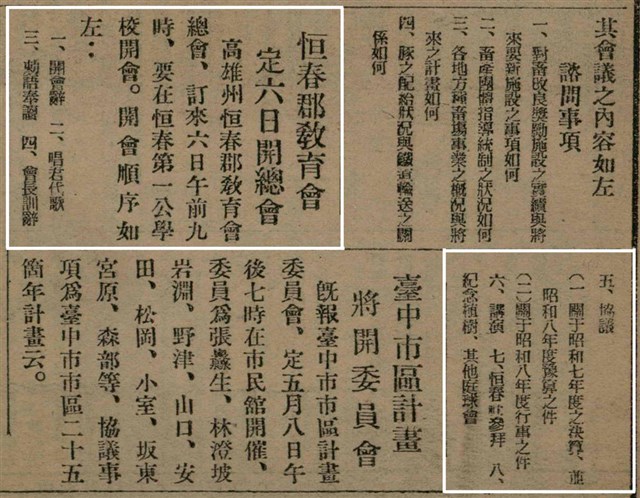 其會議之內容如左
諮問事項
一、對畜改良獎勵施設之實績與將
來要新施設之事項如何
二、畜產團體指導統制之狀況如何
三、各地方種畜場事業之概況與將
來之計畫如何
四、豚之配給狀況與鐵道輸送之關
係如何
恒春郡教育會
定六日開總會
高雄州恒春郡教育會
總會、訂來六日午前九
時、要在恒春第一公學
校開會。開會順序如
左：
一、開會辭 二、唱君代歌
三、勅語奉讀 四、會長訓辭
五、協議
(一)關于昭和七年度之決算、並
昭和八年度豫算之件
(二)關于昭和八年度行事之件
六、講演 七、恒春社參拜 八、
紀念植樹、其他庭球會
臺中市區計畫
將開委員會
既報臺中市市區計畫
委員會、定五月八日午
後七時在市民館開催、
委員爲張蠡生、林澄坡
岩淵、野津、山口、安
田、松岡、小室、坂東
宮原、森部等、協議事
項爲臺中市市區二十五
箇年計畫云。